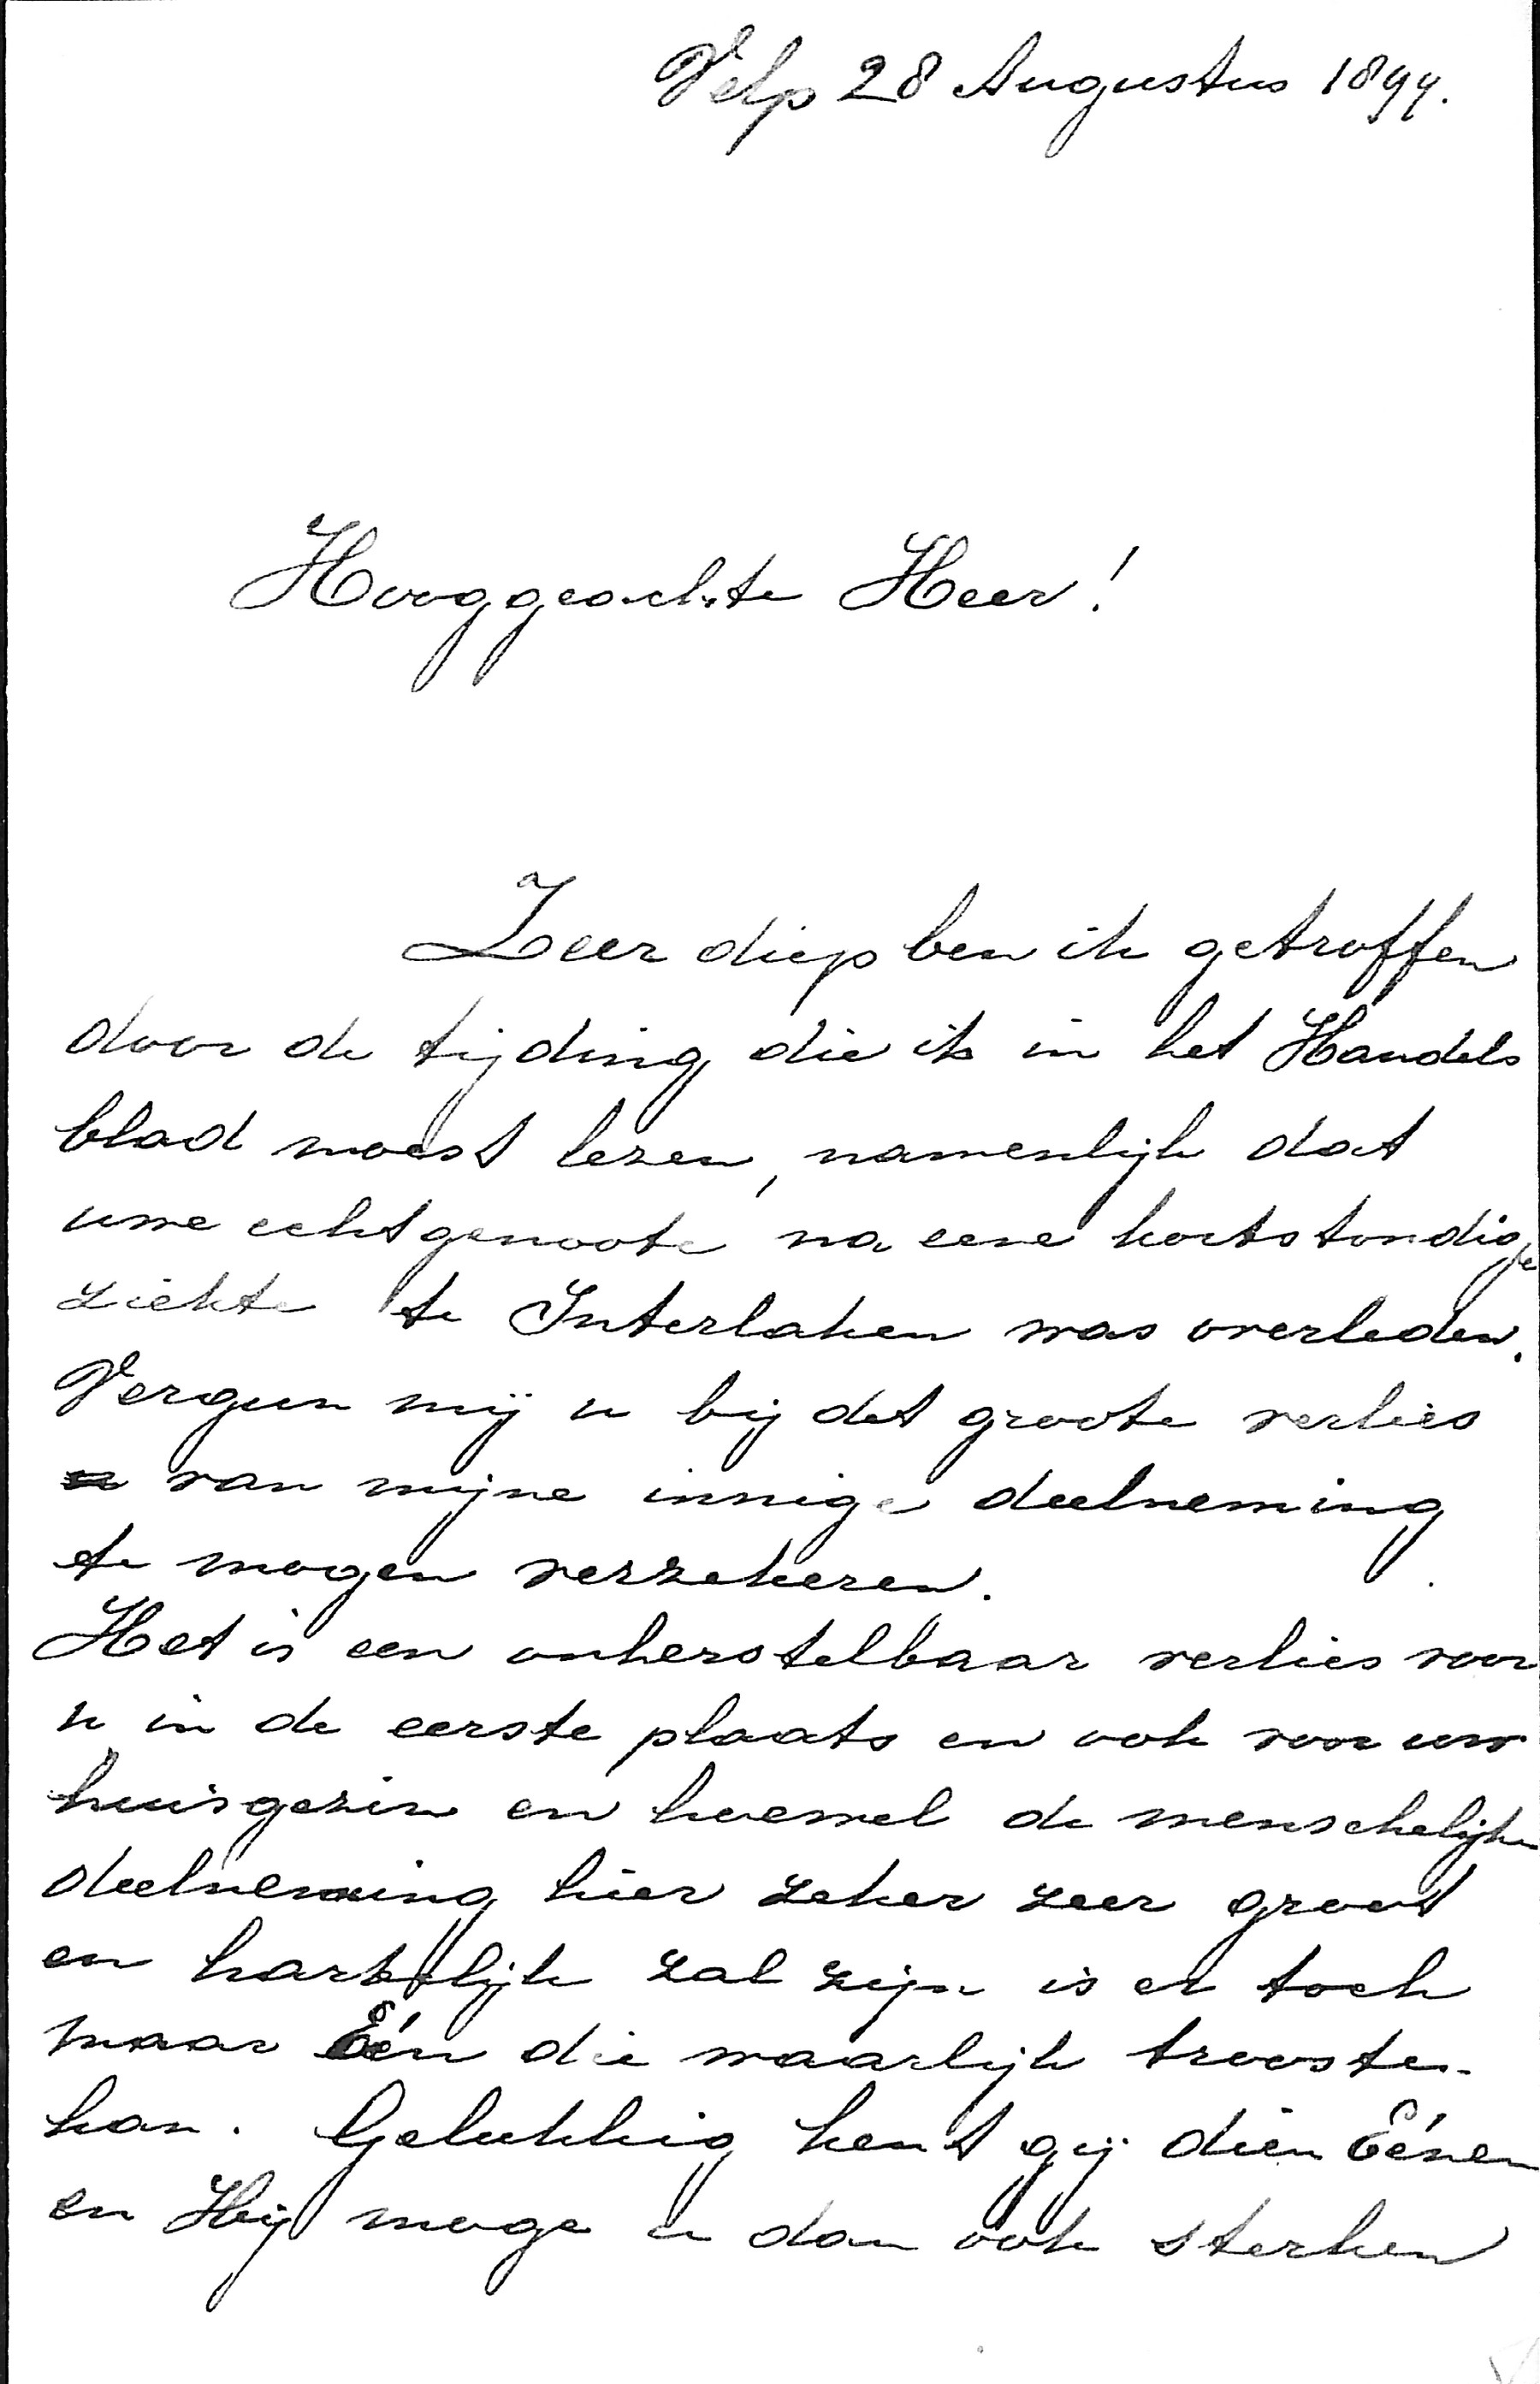 Velp 28 Augustus 1899.
Hooggeachte Heer!
Zeer diep ben ik getroffen
door de tijding die ik in het Handels
blad moest lezen, namenlijk dat
uwe echtgenoote na eene kortstondige
ziekte te Interlaken was overleden.
Vergun mij u bij dat groote verlies
van mijne innige deelneming
te mogen verzekeren.
Het is een onherstelbaar verlies voor
u in de eerste plaats en ook voor uw
huisgezin en hoewel de menschelijke
deelneming hier zeker zeer groot
en hartelijk zal zijn is er toch
maar Eén die waarlijk troosten
kan. Gelukkig kent gij dien Eénen
en Hij moge u dan ook sterken